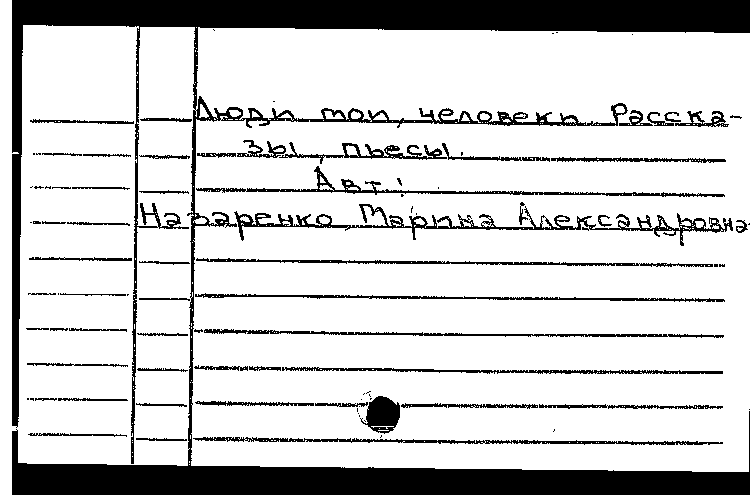 Люди мои, человеки. Расска-
зы, пьесы.
Авт.:
Назаренко, Марина Александровна